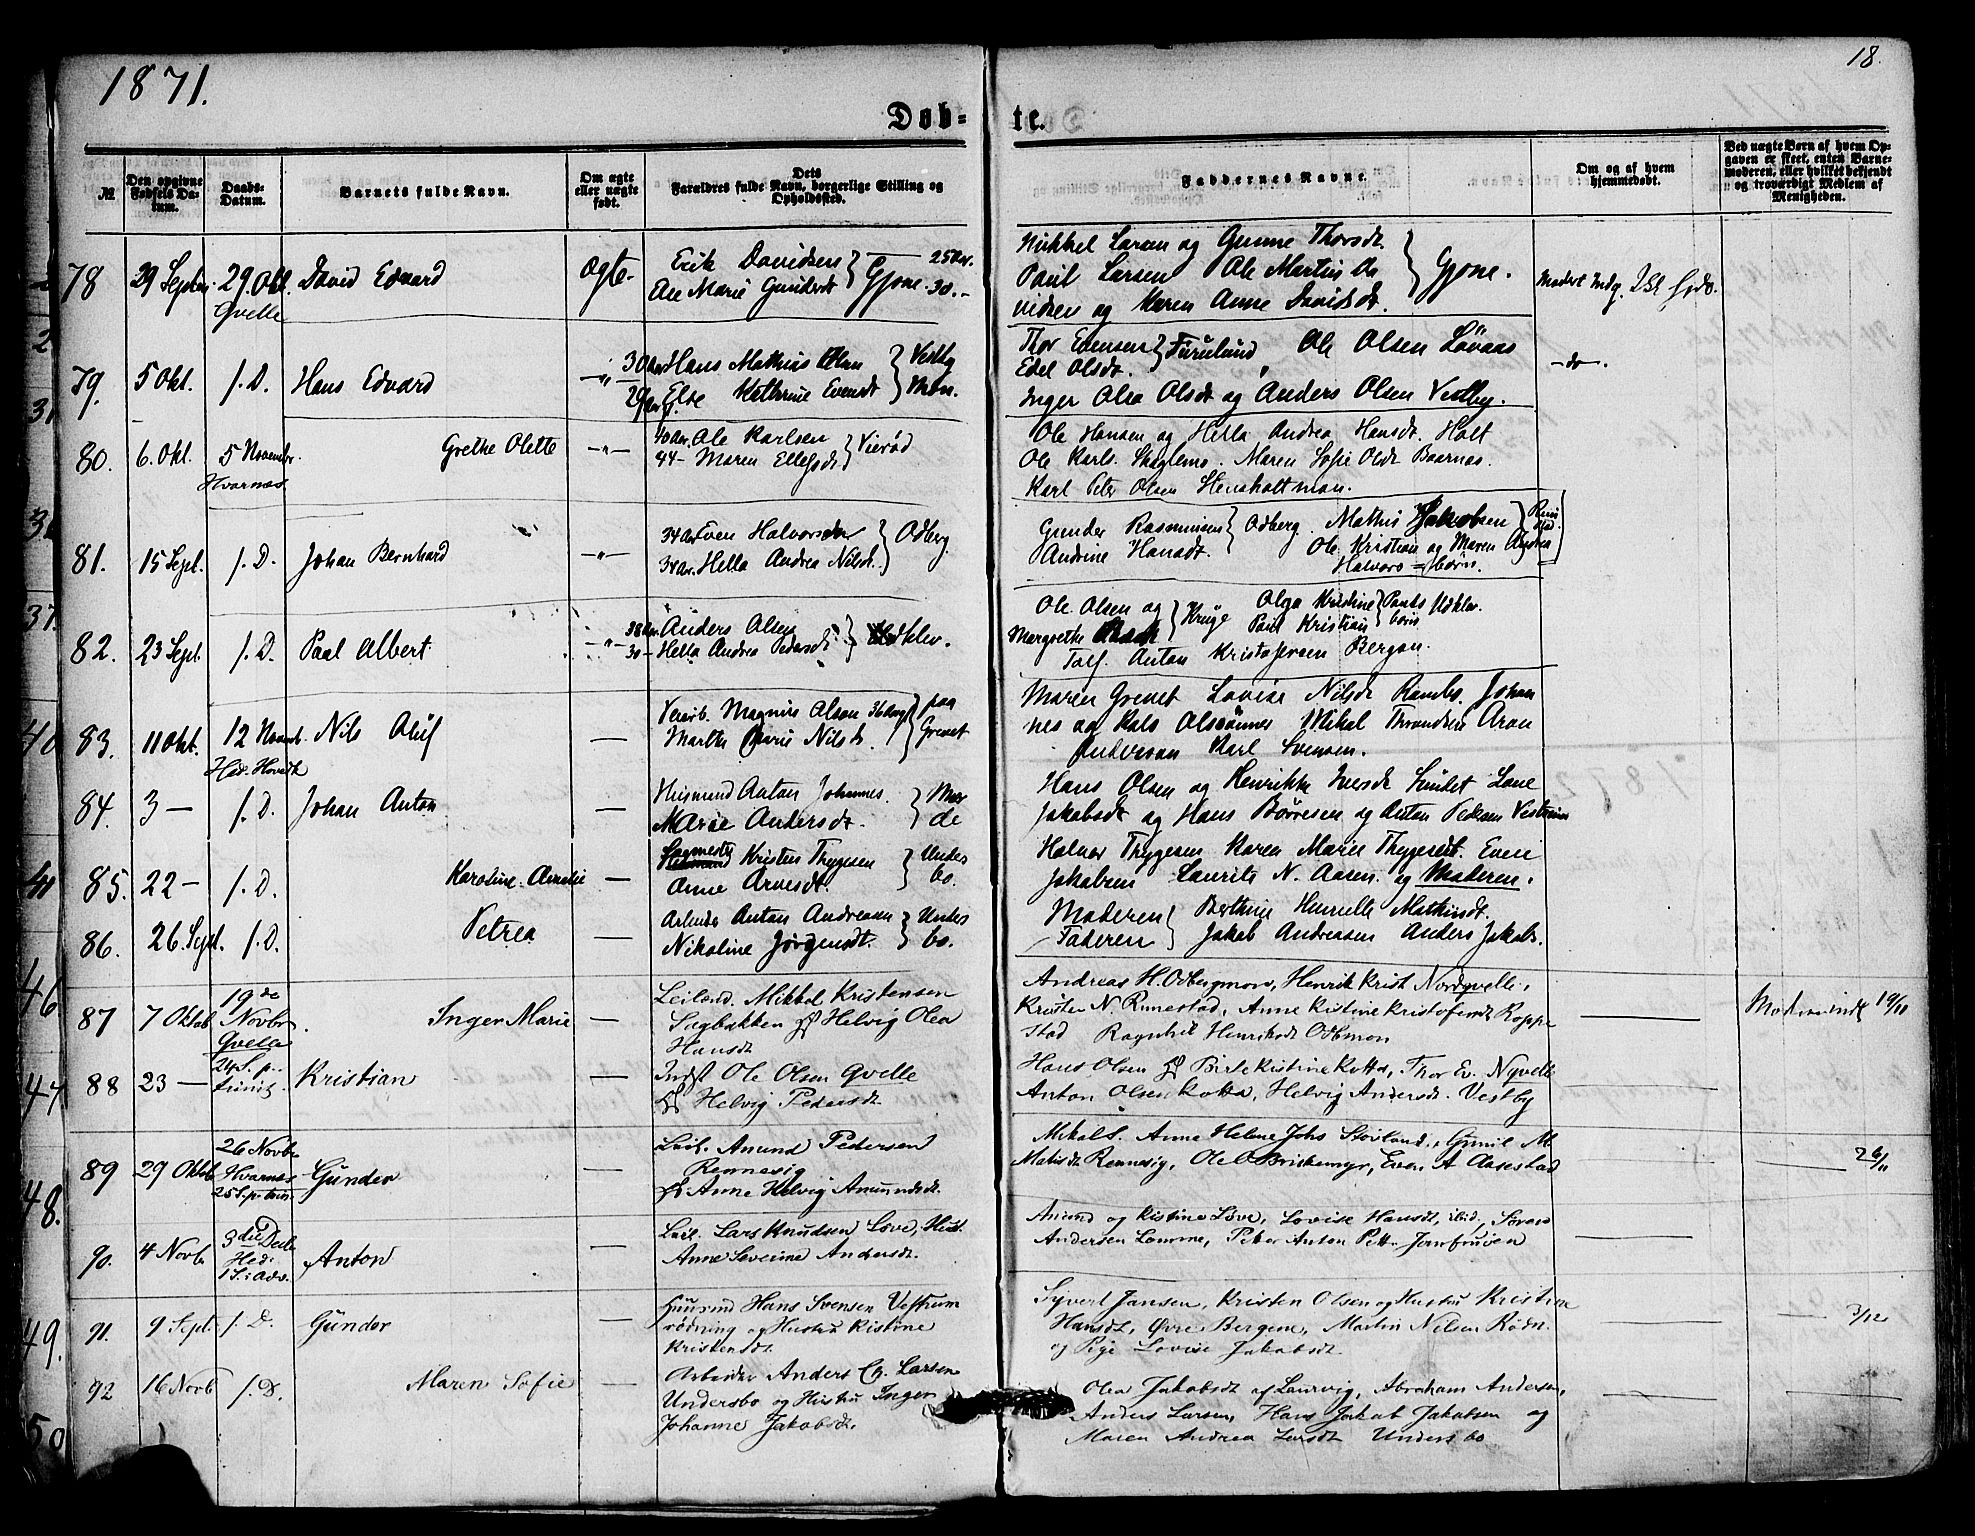 1871.
18.
Døb-
te.
№
Den opgivne Fødsels Datum.
Daabs-Datum.
Barnets fulde Navn.
Om ægte eller uægte født.
Dets Forældres fulde Navn, borgerlige Stilling og Opholdssted.
Faddernes Navne.
Om og af hvem hjemmedøbt.
Ved uægte Børn af hvem Opgaven er skeet, enten Barnemoderen, eller hvilket bekjendt og troværdigt Medlem af Menigheden.
78 29 Septbr. 29. Okt. Qvelle David Edvard Ægte
Erik Davidsen 25 Aar.
Ane Marie Gundersdt. Gjone 30.
Mikkel Larsen og Gunne Thorsdt.
Paul Larsen Ole Martin Da
vidsen og Maren Anne Davidsdt. Gjone.
79. 5 Okt. f. D. Hans Edvard
30 Aar Hans Mathias Olsen Vestby
29 Aar Else Kathrine Evensdt Mon.
Thor Evensen Furulund, Ole Olsen Løvaas
Edel Olsdt.
Inger Olea Olsdt og Anders Olsen Vestby.
-do-.
80. 6. Okt. 5 Novembr. Hvarnæs Grethe Olette
40 Aar. Ole Karlsen
44- Maren Ellefsdt Vierød
Ole Hansen og Hella Andrea Hansdt. Holt
Ole Karls. Skoglems. Maren Sofie Olsdt Baarnæs.
Karl Peter Olsen
81. 15 Sept. f. D. Johan Bernhard
34 Aar Even Halvorsen Odberg
34 Aar. Hella Andrea Nilsdt.
Gunder Rasmussen Odberg. Mathis Jakobsen
Andrine Hansdt. Ole Kristian og Maren Andrea
Halvors Børn.
82. 23 Sept. f. D. Paal Albert
38 Aar. Anders Olsen
30- Hella Andrea Pedersdt. Udklev.
Ole Olsen og Kruge Olga Kristine Pauls Udklev.
Margrethe Paul Kristian børn
Anton Kristofersen Bergan.
83. 11 Okt. 12 Novemb. Hed. Hovedk Nils Oluf
Magnus Olsen 36 Aar paa
Marthe Marie Nilsdt. Grenet
Maren Grenet Lovise Nilsdt Rambs. Johan
nes og Karls Olssønner Mikal Throndsen Aron
Andersson Karl Svensen.
84. 3 — f. D. Johan Anton
Husmand Anton Johannes.
Marie Andersdt.
Hans Olsen og Henrikke Iversdt Sundet Lane
Jakobsdt og Hans Børresen og Anton Pedersen Vestrum
85. 22 — f. D. Karoline Amalie
Kristen Thygesen Unders
Anne Arnesdt. bo.
Halvor Thygesen Karen Marie Thygesdt. Even
Jakobsen Laurits N. Aasen. og Moderen.
86. 26. Sept. f. D. Petrea
Arbeider Anton Andreasen Unders
Nikoline Jørgensdt. bo.
Moderen Berthine Henrielle Mathisdt.
Faderen Jakob Andreasen Anders Jakobs.
87 7 Oktob 19de Novbr. Qvelle Inger Marie
Leilænd. Mikkel Kristensen
Sagbakken og Helvig Olea
Hansdt
Andreas H. Odbergmon, Henrik Krist Nordqvelle,
Kristen N. Rimestad, Anne Kistine Kristofersdt Roppe
stad Ragnhil Henriksdt Odbmon
19/11
88 23 — 24 S. p. trinit. Kristian
Indst Ole Olsen Qvelle
og Helvig Pedersdt
Hans Olsen og Birte Kistine Kotta, Thor Ev. Nyvelle
Anton Olsen Kotta, Helvig Andersdt. Vestby
89 29 Oktob 26 Novbr Hvarnæs 25 S. p. trin. Gunder
Leil. Amund Pedersen
Rennesig
og Anne Helvig Amundsdt.
Mikal S. Anne Helene Johs Støvland, Gunil M.
Matisdt Rennesig, Ole O Briskemyr, Even A Aasestad
26/11
90. 4 Novb 3die Decbr Hed: 1 S. i Adv. Anton
Leil. Lars Knudsen Løve, Hust.
Anne Severine Andersdt.
Amund og Kistine Løve, Lovise Hansdt, ibid, Søren
Andersen Lamme, Peter Anton Pett. Jomfruøen
91. 9 Sept. f. D. Gunder
Huusmd Hans Svensen Vestrum
rødning og Hustru Kistine
Kristensdt.
Syvert Jansen, Kristen Olsen og Hustru Kristine
Hansdt, Øvre Bergene, Martin Nilsen Rødn.
og Pige Lovise Jakobsdt.
3/12
92 16 Novb f. D. Maren Sofie
Arbeider Anders Chr. Larsen
Undersbo og Hustru Inger
Johanne Jakobsdt.
Olea Jakobsdt af Laurvig, Abraham Andersen,
Anders Larsen, Hans Jakob Jakobsen og
Maren Andrea Larsdt Undersbo